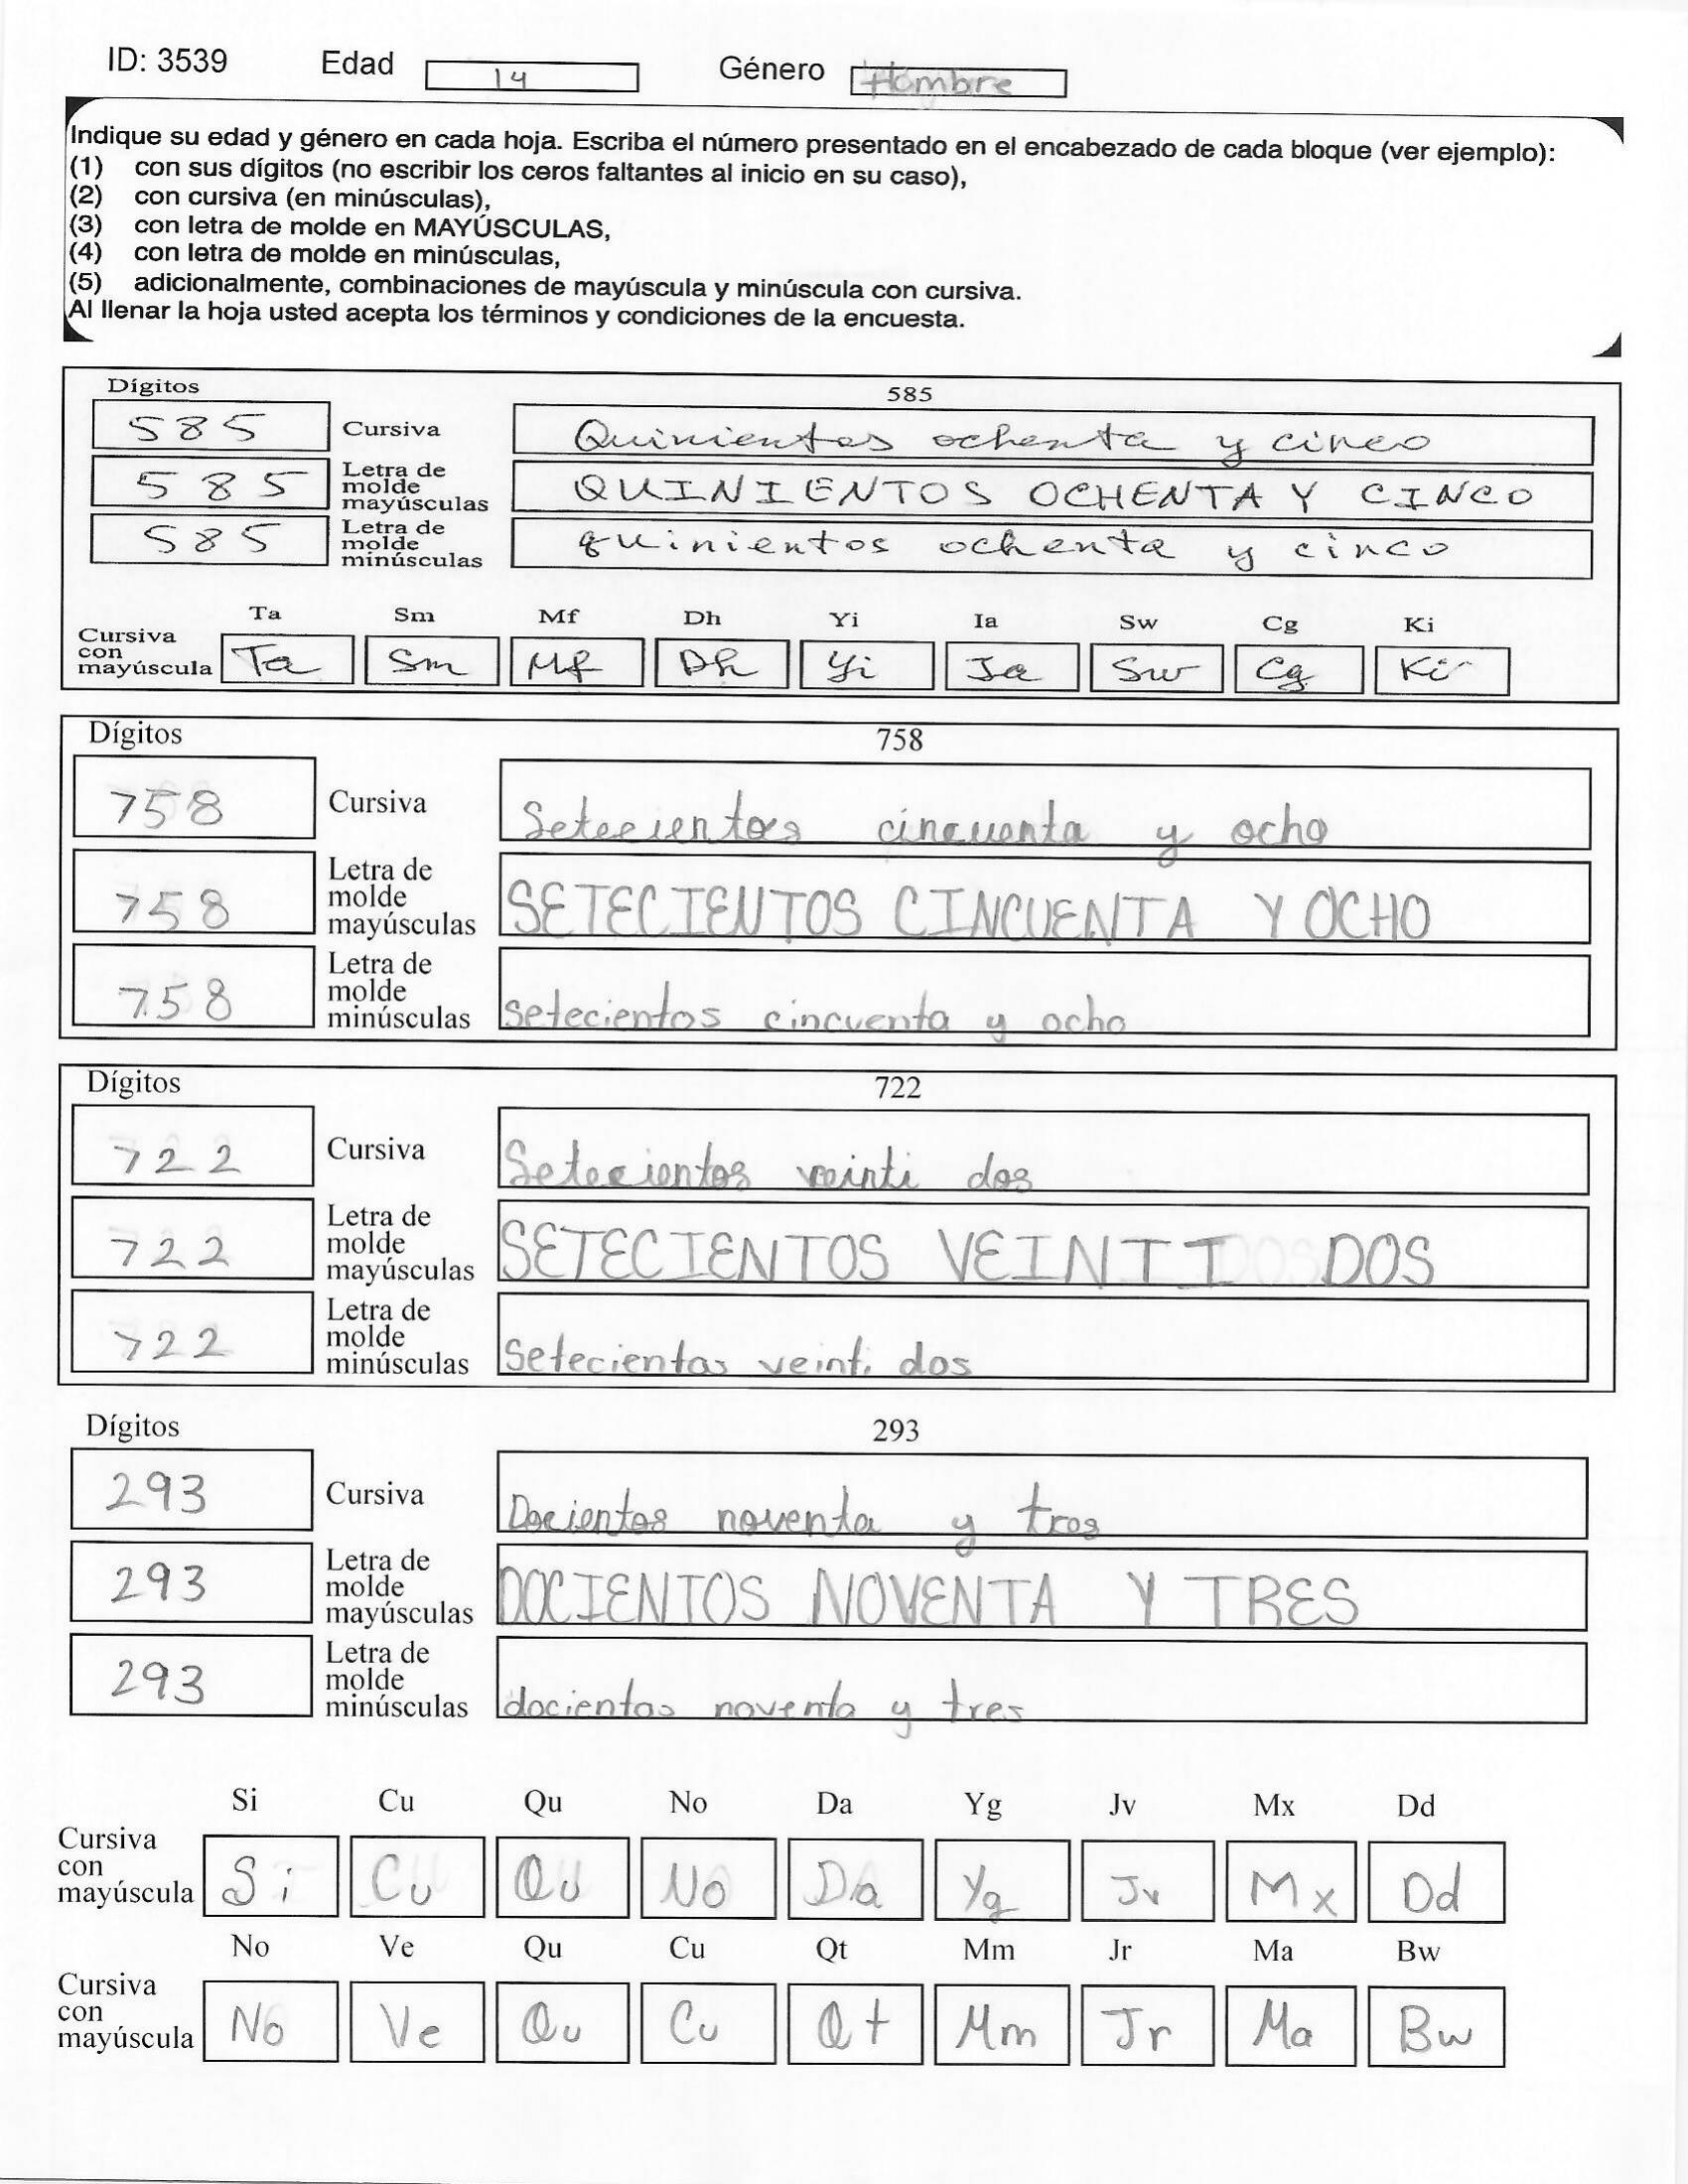 ID: 3539 Edad 14 Género Hombre
Indique su edad y género en cada hoja. Escriba el número presentado en el encabezado de cada bloque (ver ejemplo):
(1) con sus dígitos (no escribir los ceros faltantes al inicio en su caso),
(2) con cursiva (en minúsculas),
(3) con letra de molde en MAYÚSCULAS,
(4) con letra de molde en minúsculas,
(5) adicionalmente, combinaciones de mayúscula y minúscula con cursiva.
Al llenar la hoja usted acepta los términos y condiciones de la encuesta.
Dígitos 585
585 Cursiva Quinientos ochenta y cinco
585 Letra de molde mayúsculas QUINIENTOS OCHENTA Y CINCO
585 Letra de molde minúsculas quinientos ochenta y cinco
Ta Sm Mf Dh Yi Ia Sw Cg Ki
Cursiva con mayúscula Ta Sm Mf Dh Yi Ia Sw Cg Ki
Dígitos 758
758 Cursiva Setecientos cincuenta y ocho
758 Letra de molde mayúsculas SETECIENTOS CINCUENTA Y OCHO
758 Letra de molde minúsculas setecientos cincuenta y ocho
Dígitos 722
722 Cursiva Setecientos veinti dos
722 Letra de molde mayúsculas SETECIENTOS VEINTI DOS
722 Letra de molde minúsculas setecientos veinti dos
Dígitos 293
293 Cursiva Docientos noventa y tres
293 Letra de molde mayúsculas DOCIENTOS NOVENTA Y TRES
293 Letra de molde minúsculas docientos noventa y tres
Si Cu Qu No Da Yg Jv Mx Dd
Cursiva con mayúscula Si Cu Qu No Da Yg Jv Mx Dd
No Ve Qu Cu Qt Mm Jr Ma Bw
Cursiva con mayúscula No Ve Qu Cu Qt Mm Jr Ma Bw